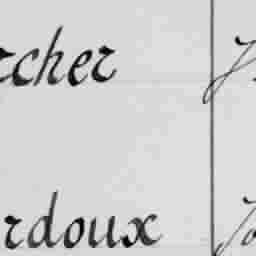 rcher
rdoux